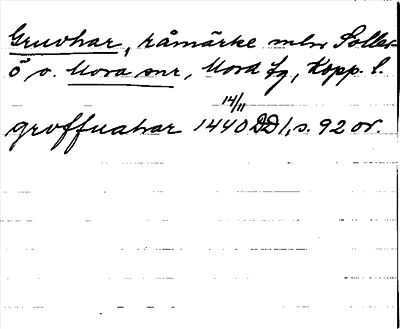 Gruvhar, råmärke mln Soller-
ö o. Mora snr, Mora fg, Kopp. l.
14/11
groffuahar 1440 DD 1, s. 92 or.